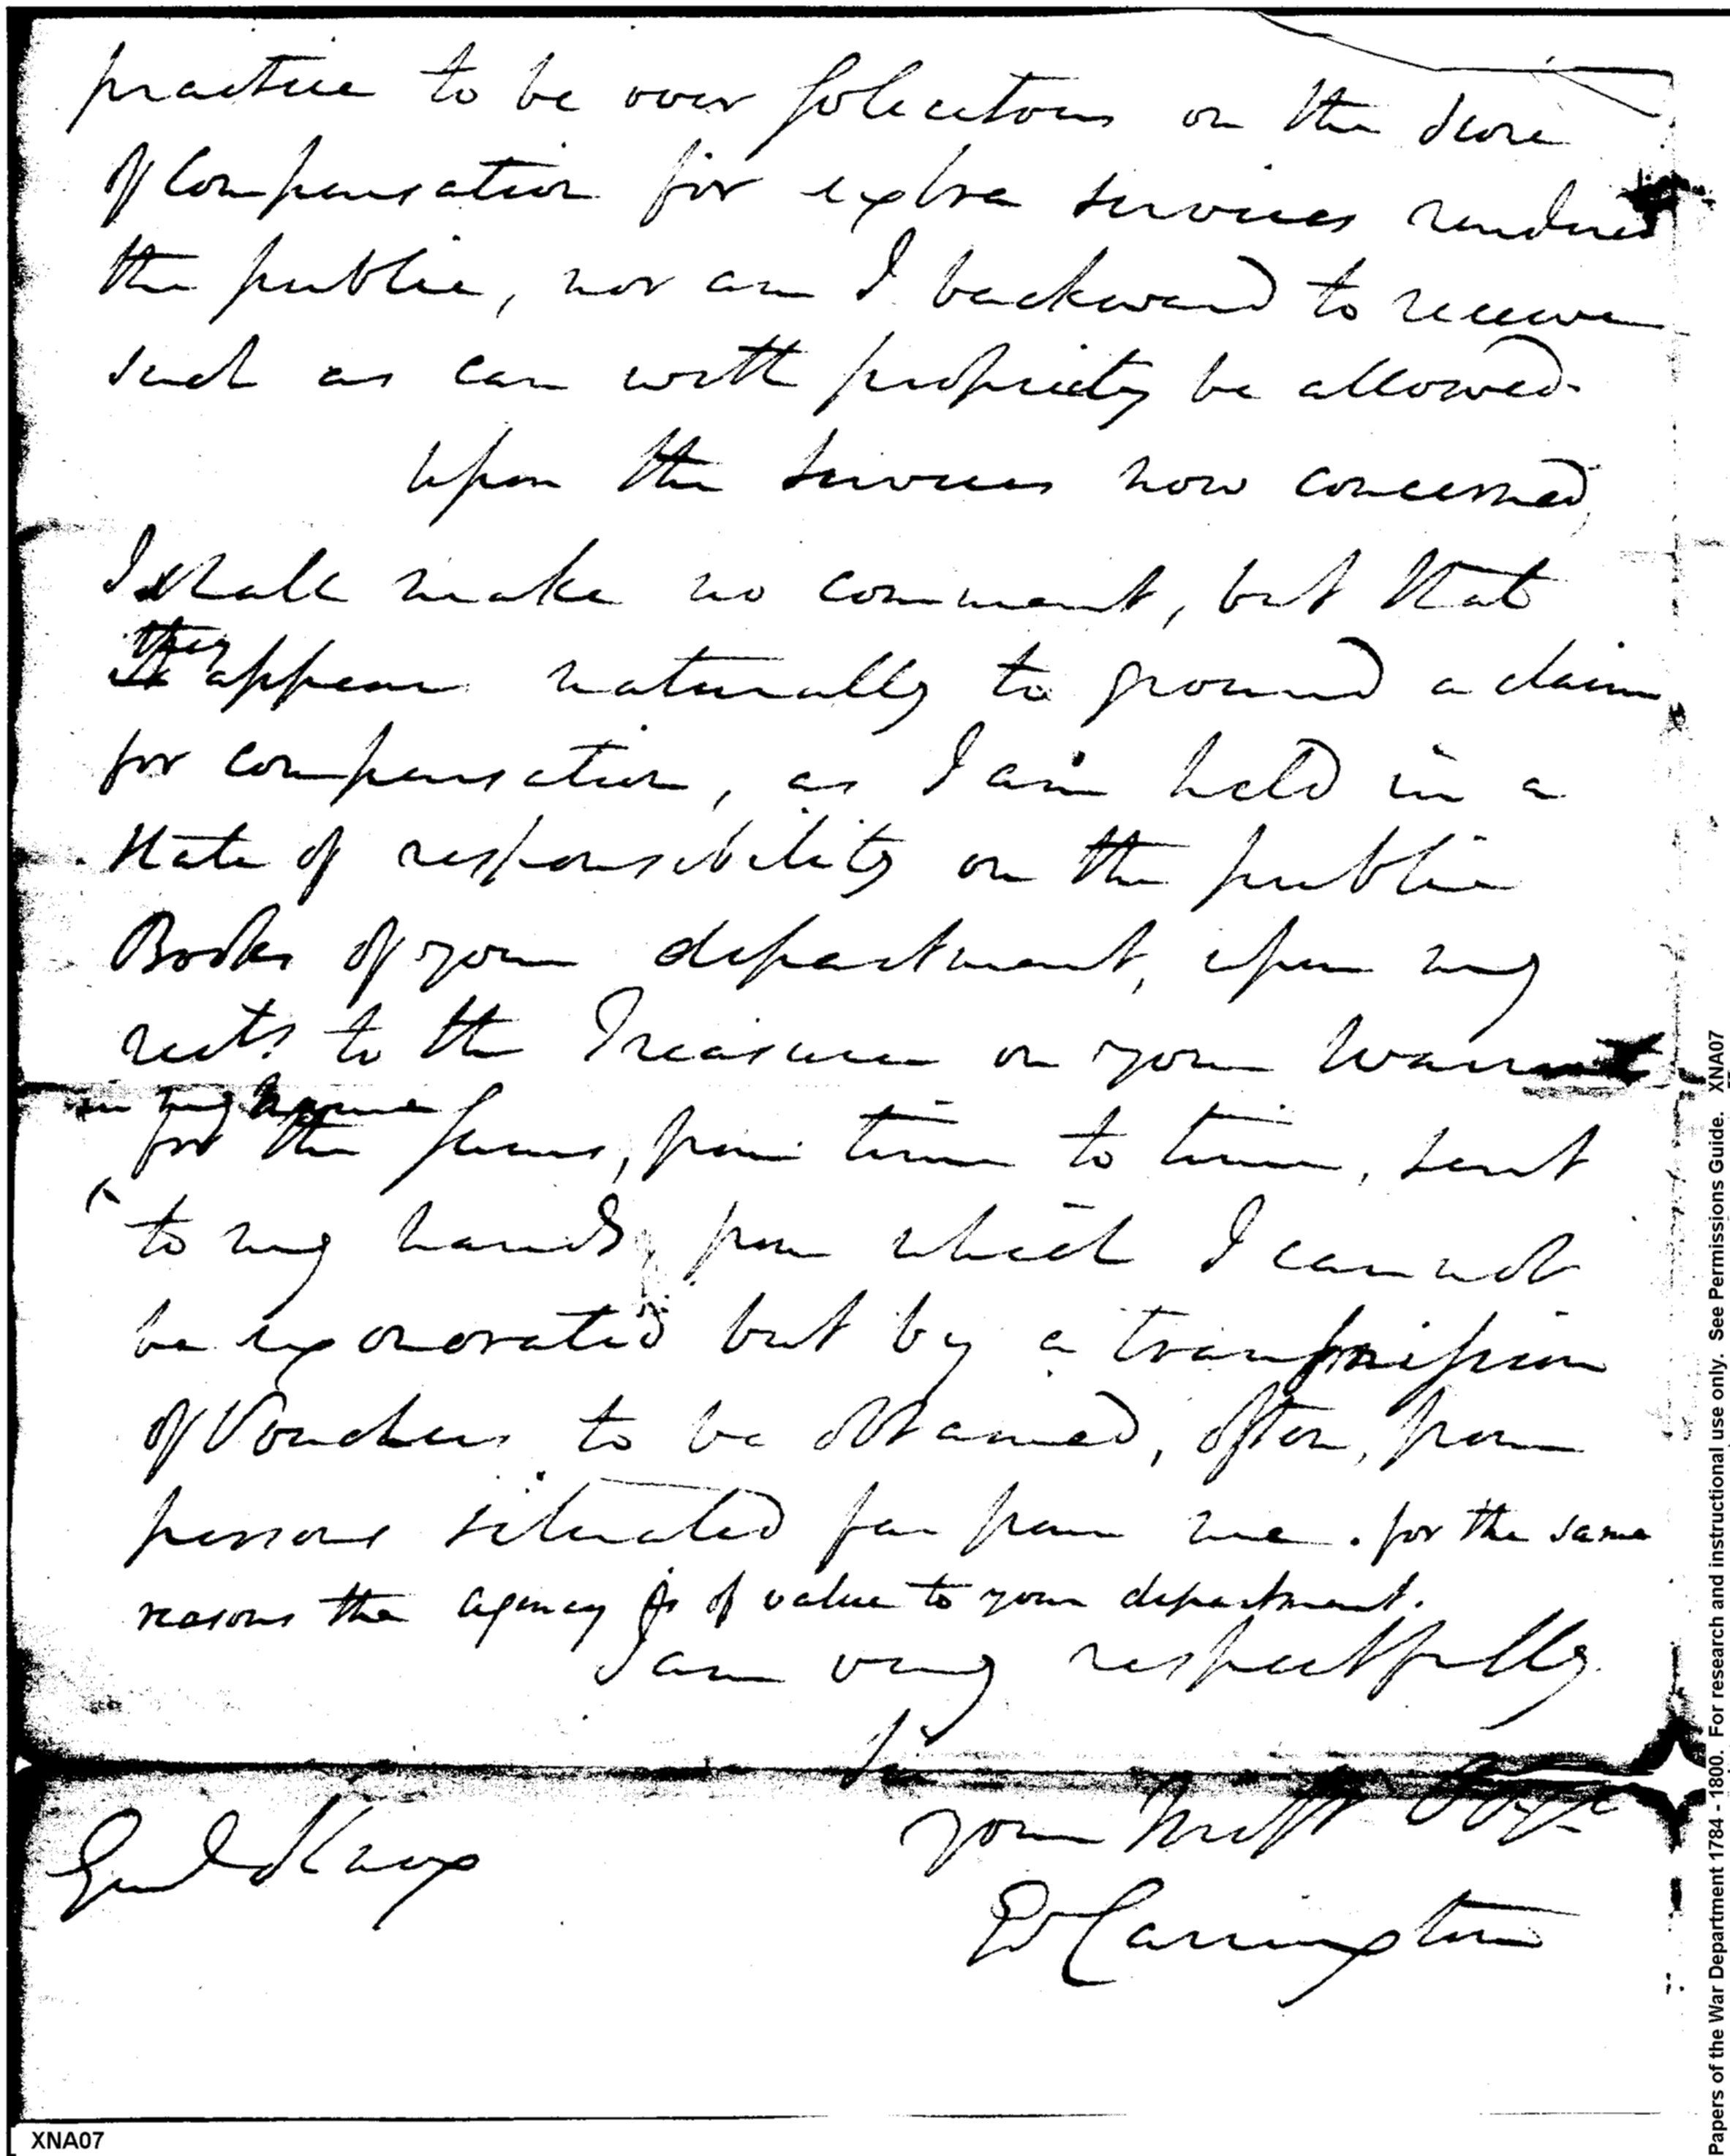 practice to be over solicitous on the score
of Compensation for extra services rendered
the public, nor am I backward to receive
such as can with propriety be allowed.
upon the services now concerned,
I shall make no comment, but that
they
appear naturally to ground a claim
for compensation, as I am held in a
State of responsibility on the public
Books of your department, upon my
rects. to the Treasurer on your Warrant
in my name
for the sums, from time to time, sent
to my hands, from which I cannot
be exonorated but by a transmission
of Vouchers to be obtained, often, from
persons situated far from me. for the same
reasons the agency is of value to your department.
I am very respectfully
Sir
your Most Obt
Genl Knox
Ed Carrington
XNA07
Papers of the War Department 1784 - 1800. For research and instructional use only. See Permissions Guide. XNA07